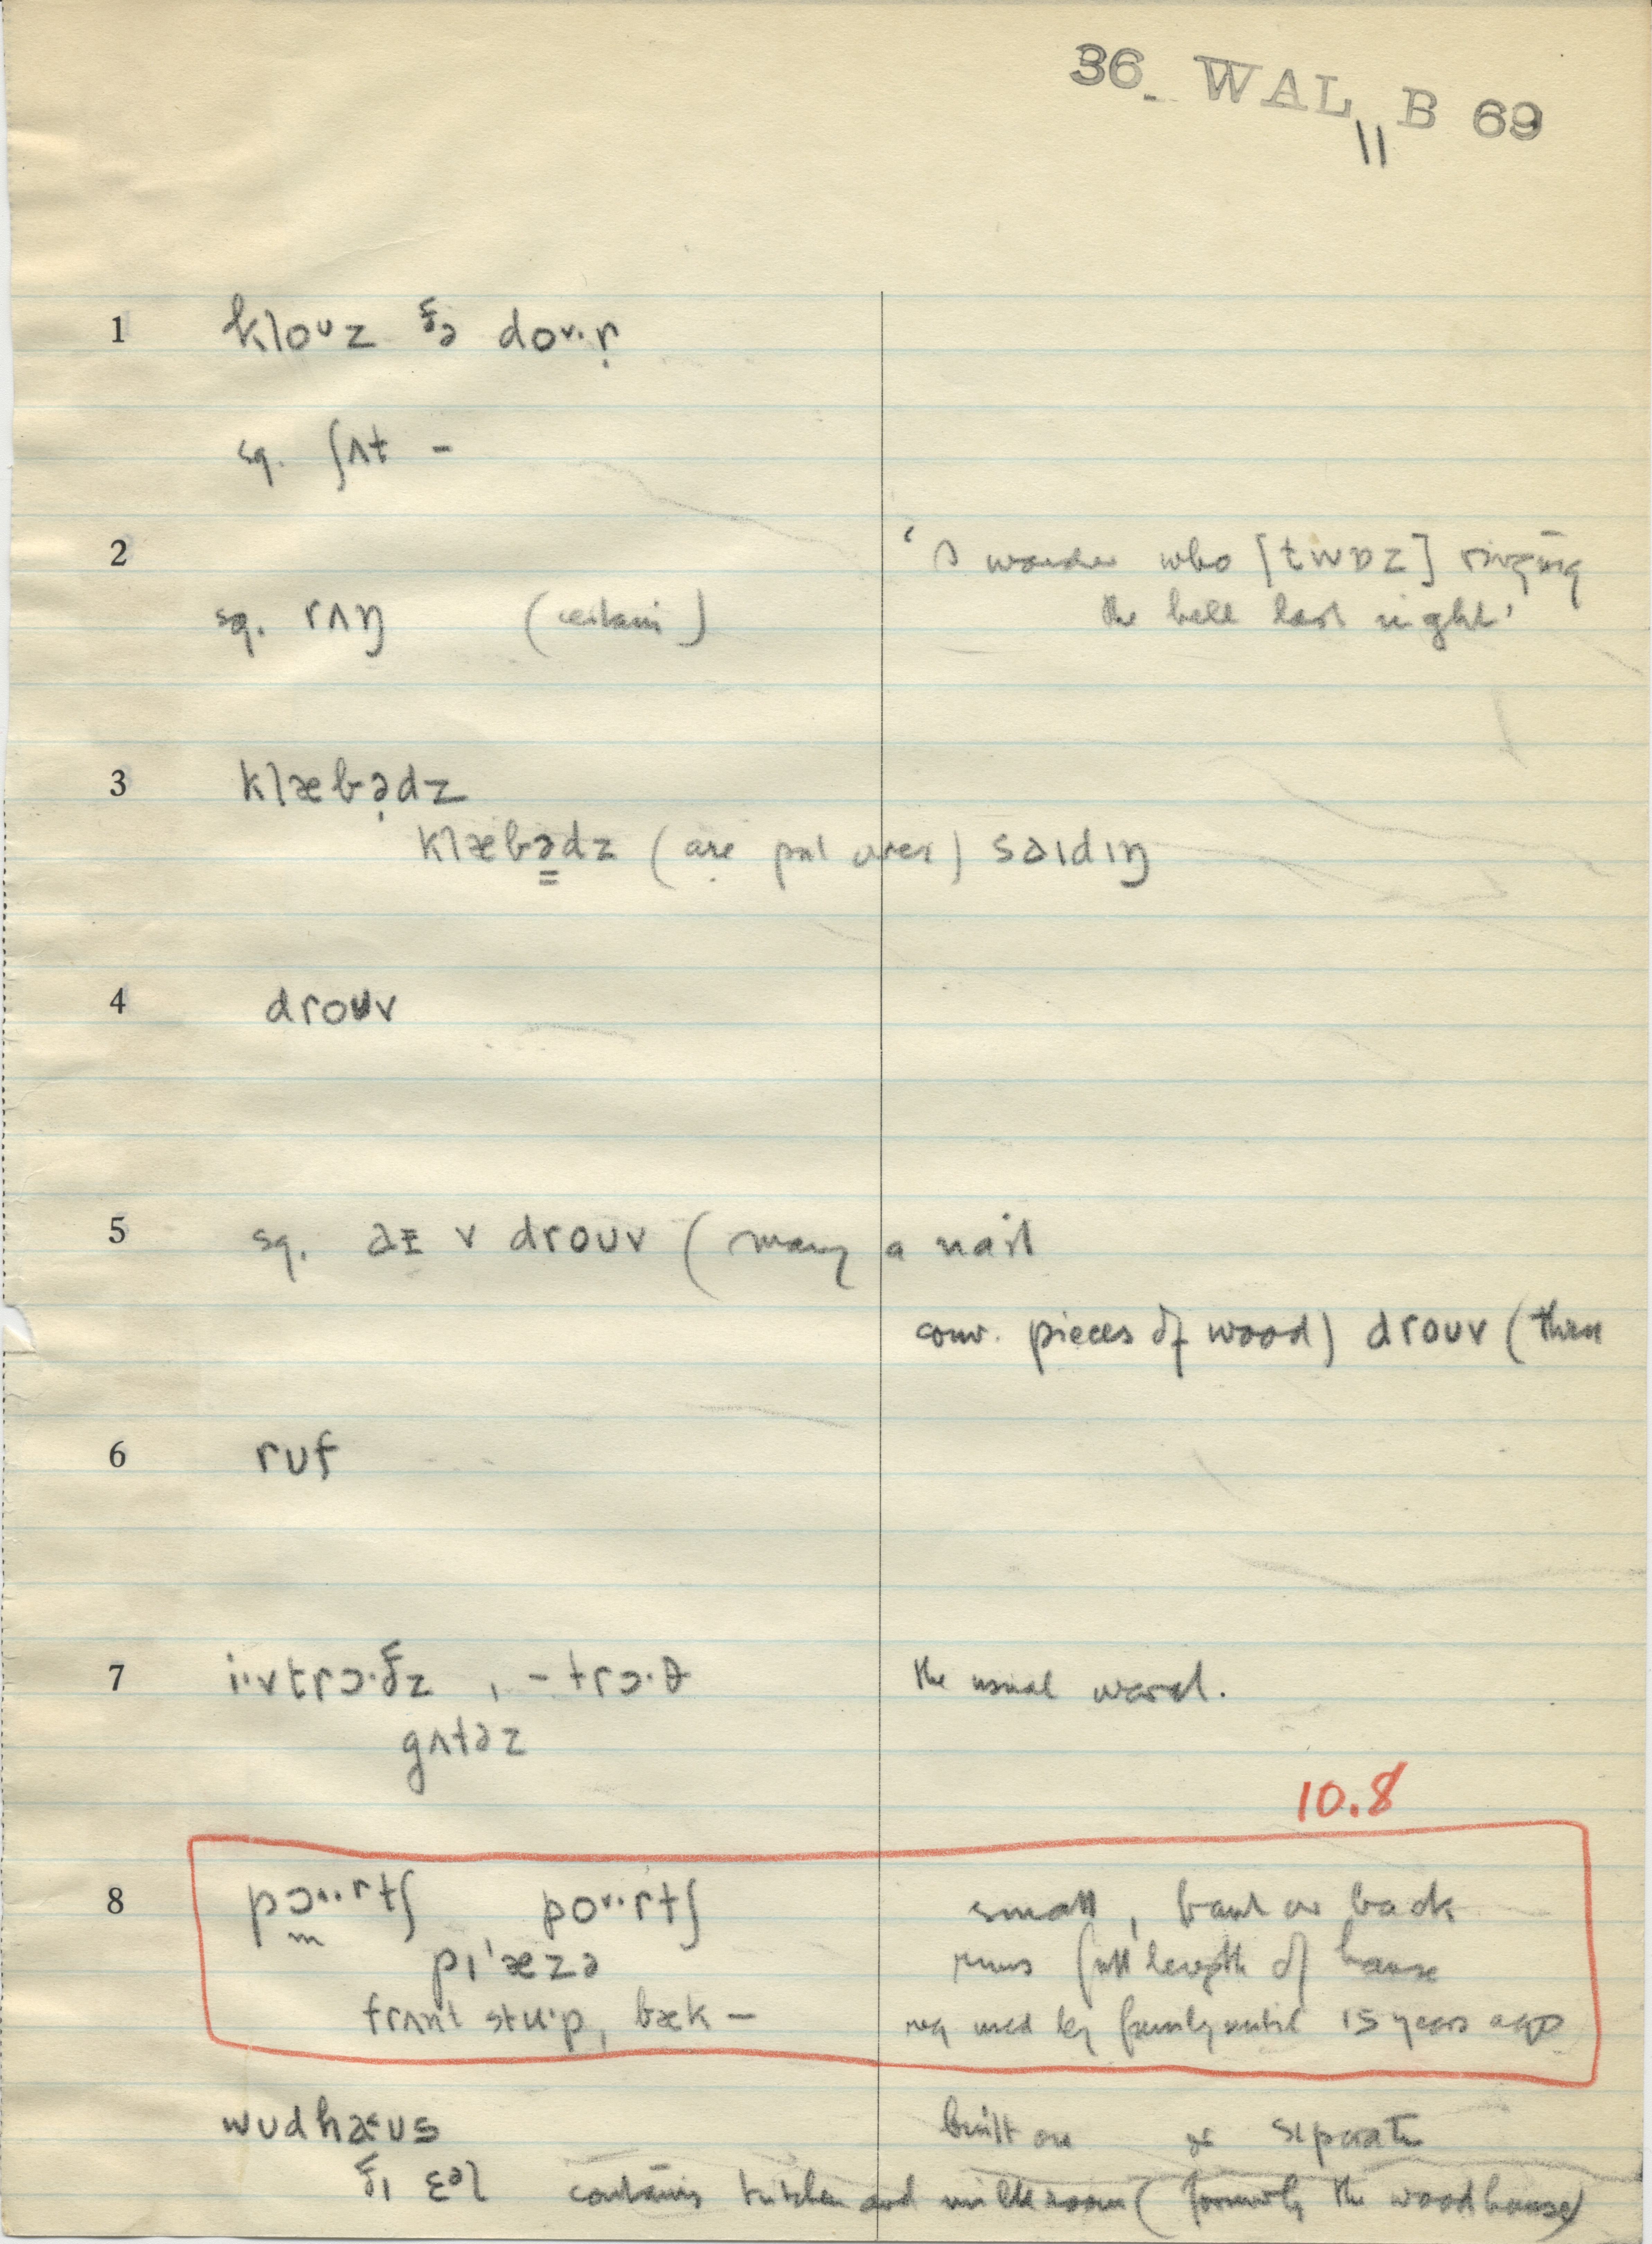 36 WAL B 69
11
1 kloᴜz ðə doᴜ·r̩
sg. ʃʌt –
2 'I wonder who [twɒz] ringing
sg. rʌŋ (certain) the bell last night'
3 klæbədz
klæbədz (are put over) səɪdɪŋ
4 droᴜv
5 sg. əɪ v droᴜv (many a nail
conv. pieces of wood) droᴜv (then
6 rᴜf
7 i·vtrɔ·ðz , – trɔ·θ the usual word.
gʌtəz
10.8
8 pɔᴜ··rtʃ poᴜ··rtʃ small, front or back
pɪˈæzə runs full length of house
frʌnt stu·p, bæk – reg used by family until 15 years ago
wᴜdhəᴜs built on or separate
ðɪ ɛəl contains kitchen and milk room (formerly the woodhouse)